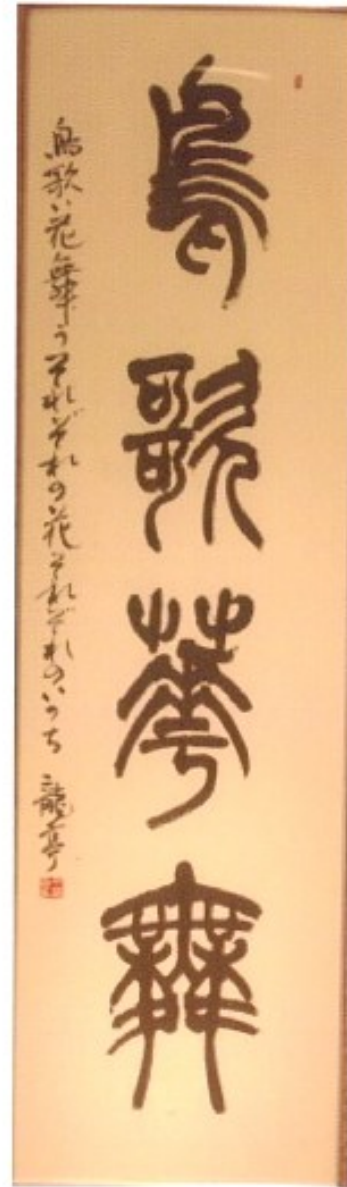 鳥歌華舞
鳥歌い花舞うそれぞれの花それぞれのいのち 龍亭